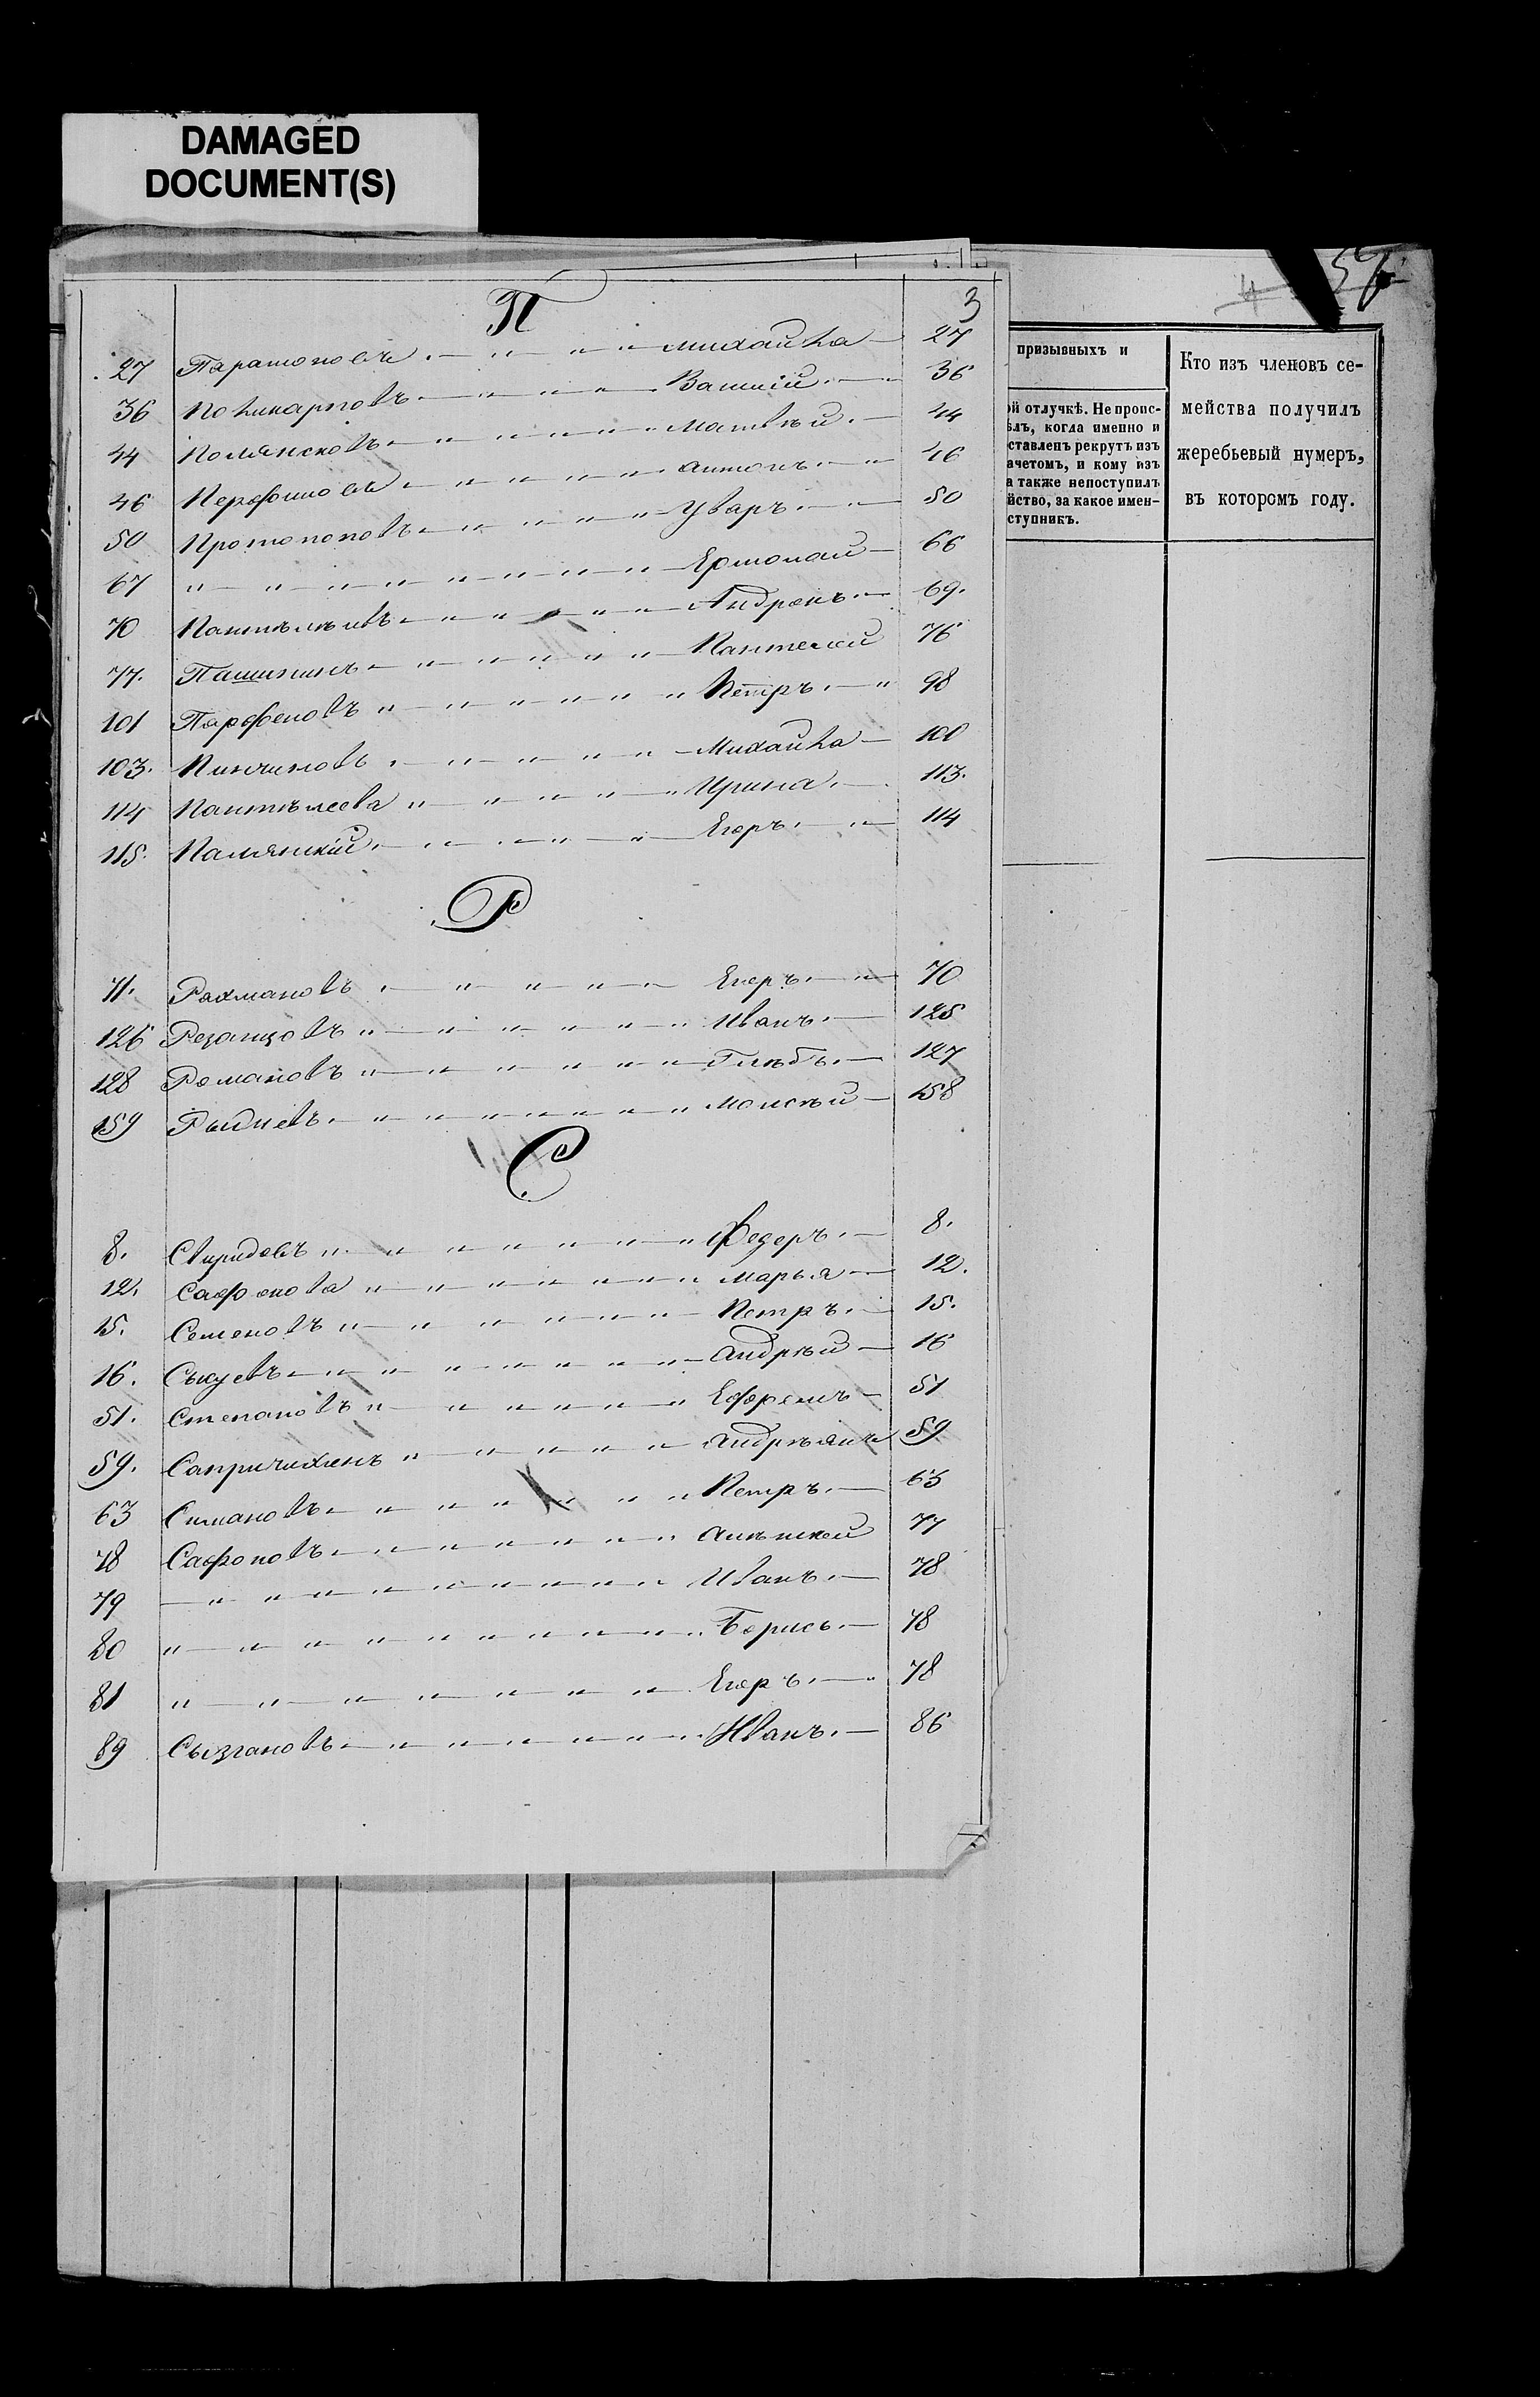 DAMAGED
DOCUMENT(S)
3
57
П
27 Парамоновъ Михайла 27
36 Поликарповъ Василiй 36
44 Полянсковъ Матвѣй 44
46 Перфиловъ Антонъ 46
50 Протопоповъ Уваръ 50
67 " " " Ермолай 66
70 Пантѣлѣевъ Андрѣнъ 69.
77. Пашининъ Пантелей 76
101 Парфеновъ Петръ 98
103. Пинчиновъ Михайла 100
114 Пантѣлеева Ирина 113.
115. Полянскiй Егоръ 114
Р
71. Рахмановъ Егоръ 70
126 Резанцовъ Иванъ 125
128 Романовъ Глѣбъ 127
159 Рыдневъ Моисѣй 158
С
8. Свиридовъ Федоръ 8.
12. Сафонова Марья 12.
15. Семеновъ Петръ 15.
16. Андрѣй 16
51. Степановъ Ефремъ 51
59. Андрѣянъ 59
63 Симановъ Петръ 63
78 Сафоновъ Алѣксѣй 77
79 " " " Иванъ 78
80 " " " Борисъ 78
81 " " " Егоръ 78
89 Сызгановъ Иванъ 86
призывныхъ и
ой отлучкѣ. Не проис-
ѣлъ, когда именно и
ставленъ рекрутъ изъ
ачетомъ, и кому изъ
а также непоступилъ
йство, за какое имен-
ступникъ.
Кто изъ членовъ се-
мейства получилъ
жеребьевый нумеръ,
въ которомъ году.